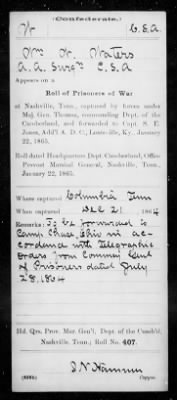 (Confederate.)
W C.S.A.
Wm W. Waters
A.A. Surg'n C.S.A
Appears on a
Roll of Prisoners of War
at Nashville, Tenn., captured by forces under
Maj. Gen. Thomas, commanding Dept. of the
Cumberland, and forwarded to Capt. S. E.
Jones, Add'l A. D. C., Louisville, Ky., January
22, 1865.
Roll dated Headquarters Dept. Cumberland, Office
Provost Marshal General, Nashville, Tenn.,
January 22, 1865.
Where captured Columbia Tenn
When captured Dec 21, 1864
Remarks: To be forwarded to
Camp Chase, Ohio in ac-
cordance with Telegraphic
orders from Commis'y Genl
of Prisoners dated July
28, 1864
Hd. Qrs. Prov. Mar. Gen'l. Dept. of the Cumb'd,
Nashville, Tenn.; Roll No. 407.
Copyist.